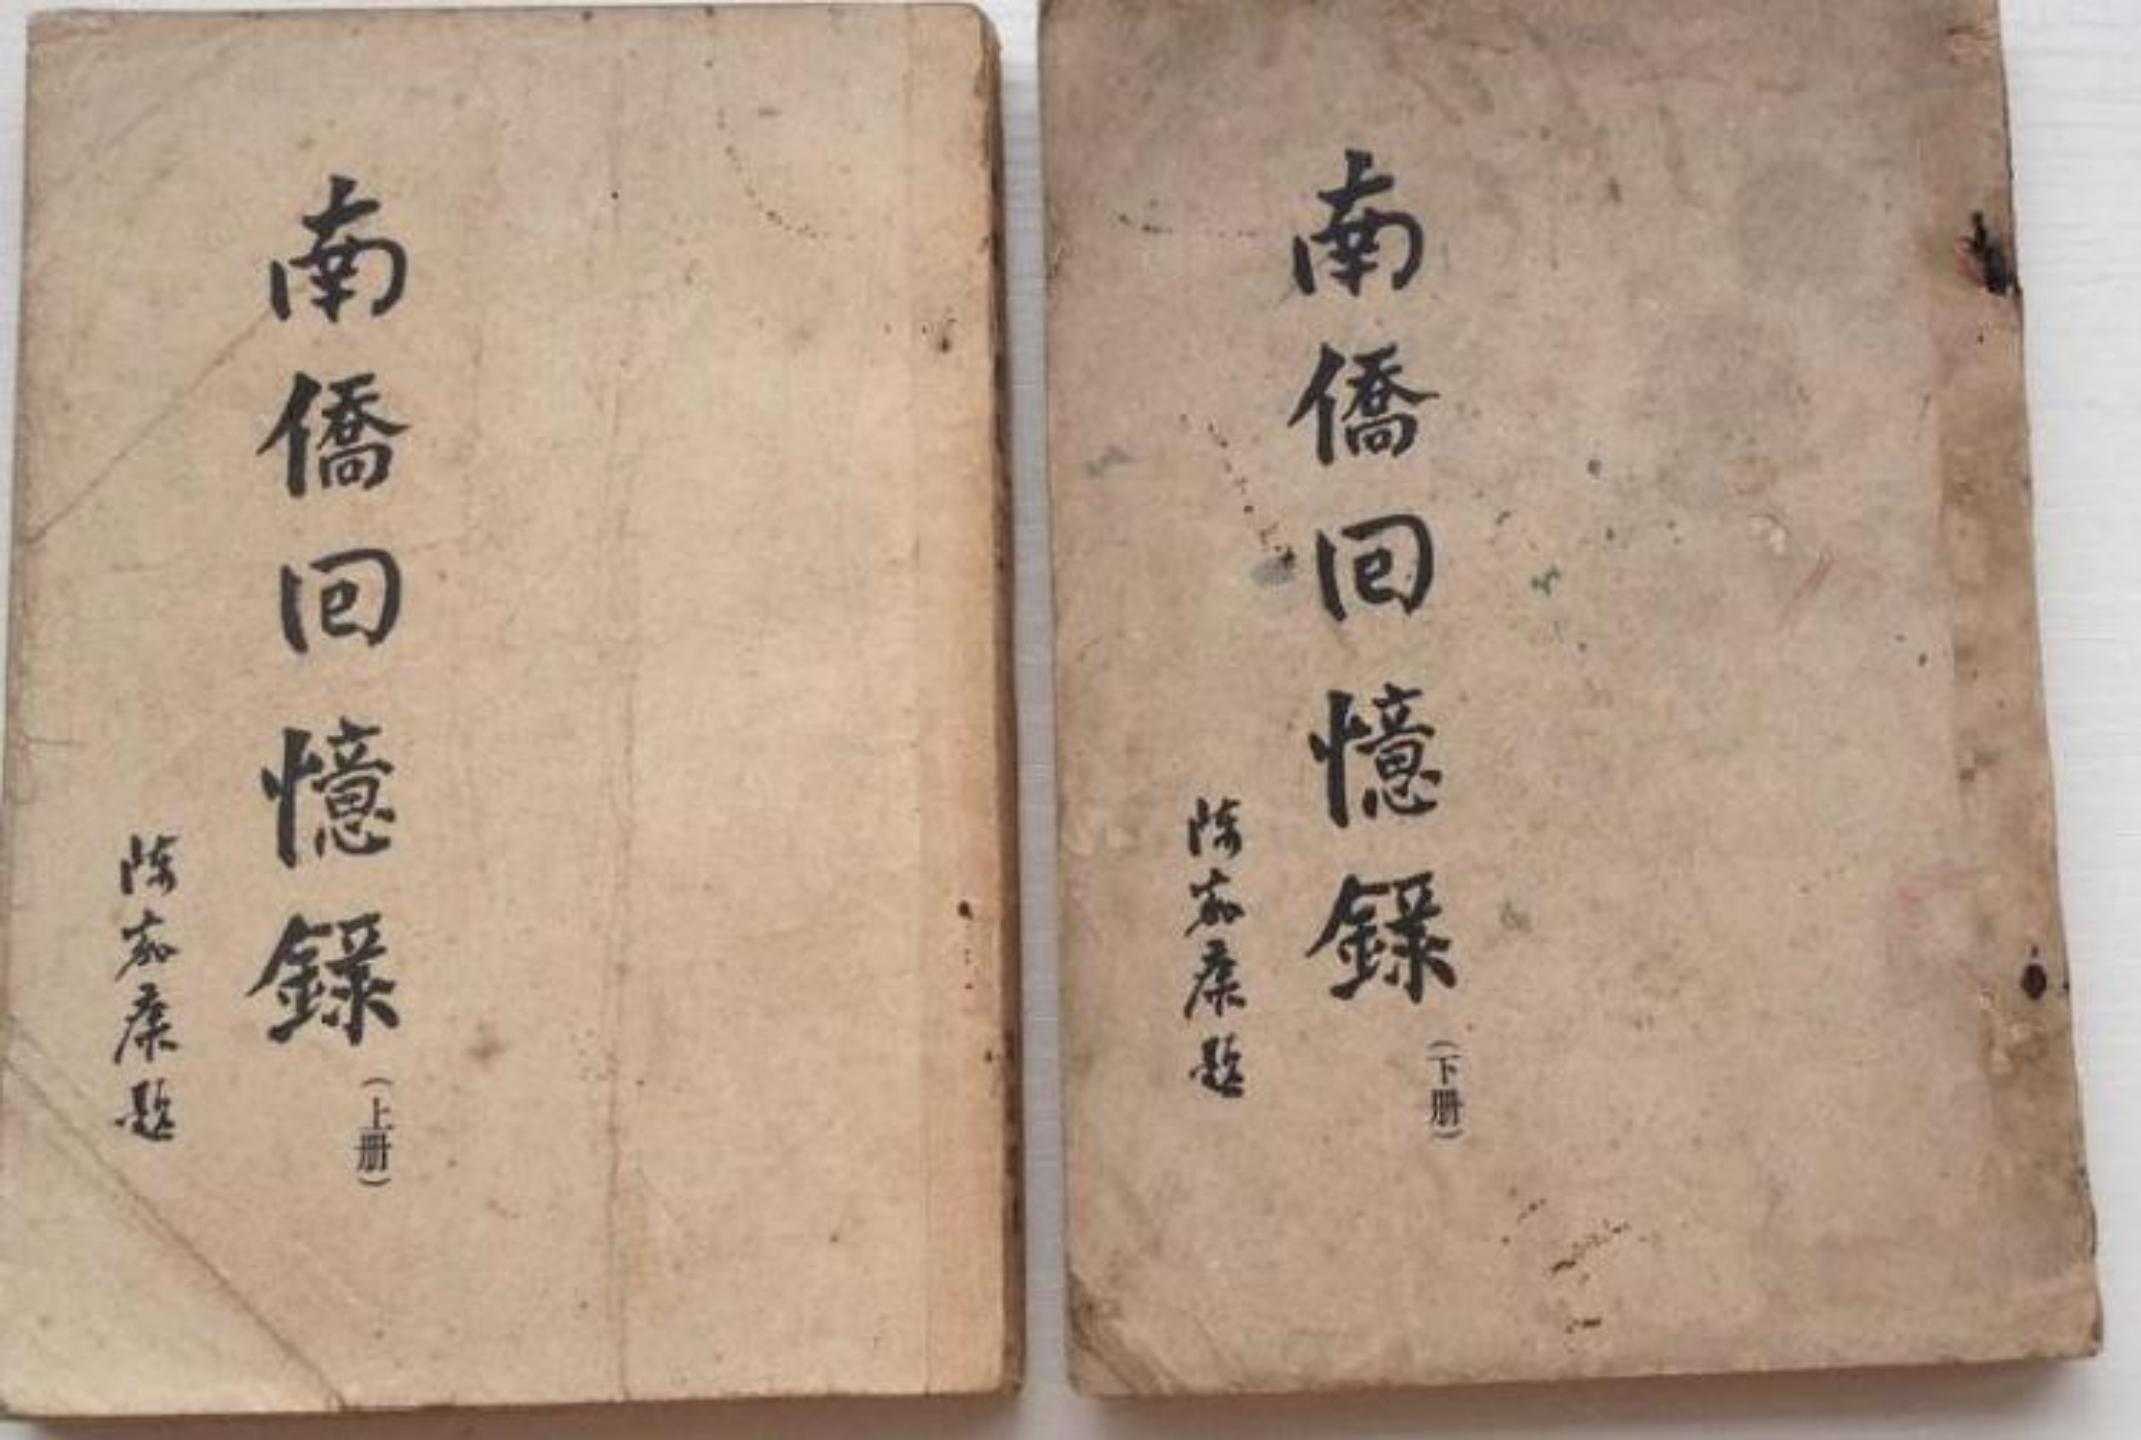 南僑回憶錄
(上册)
陈嘉庚题
南僑回憶錄
(下册)
陈嘉庚题